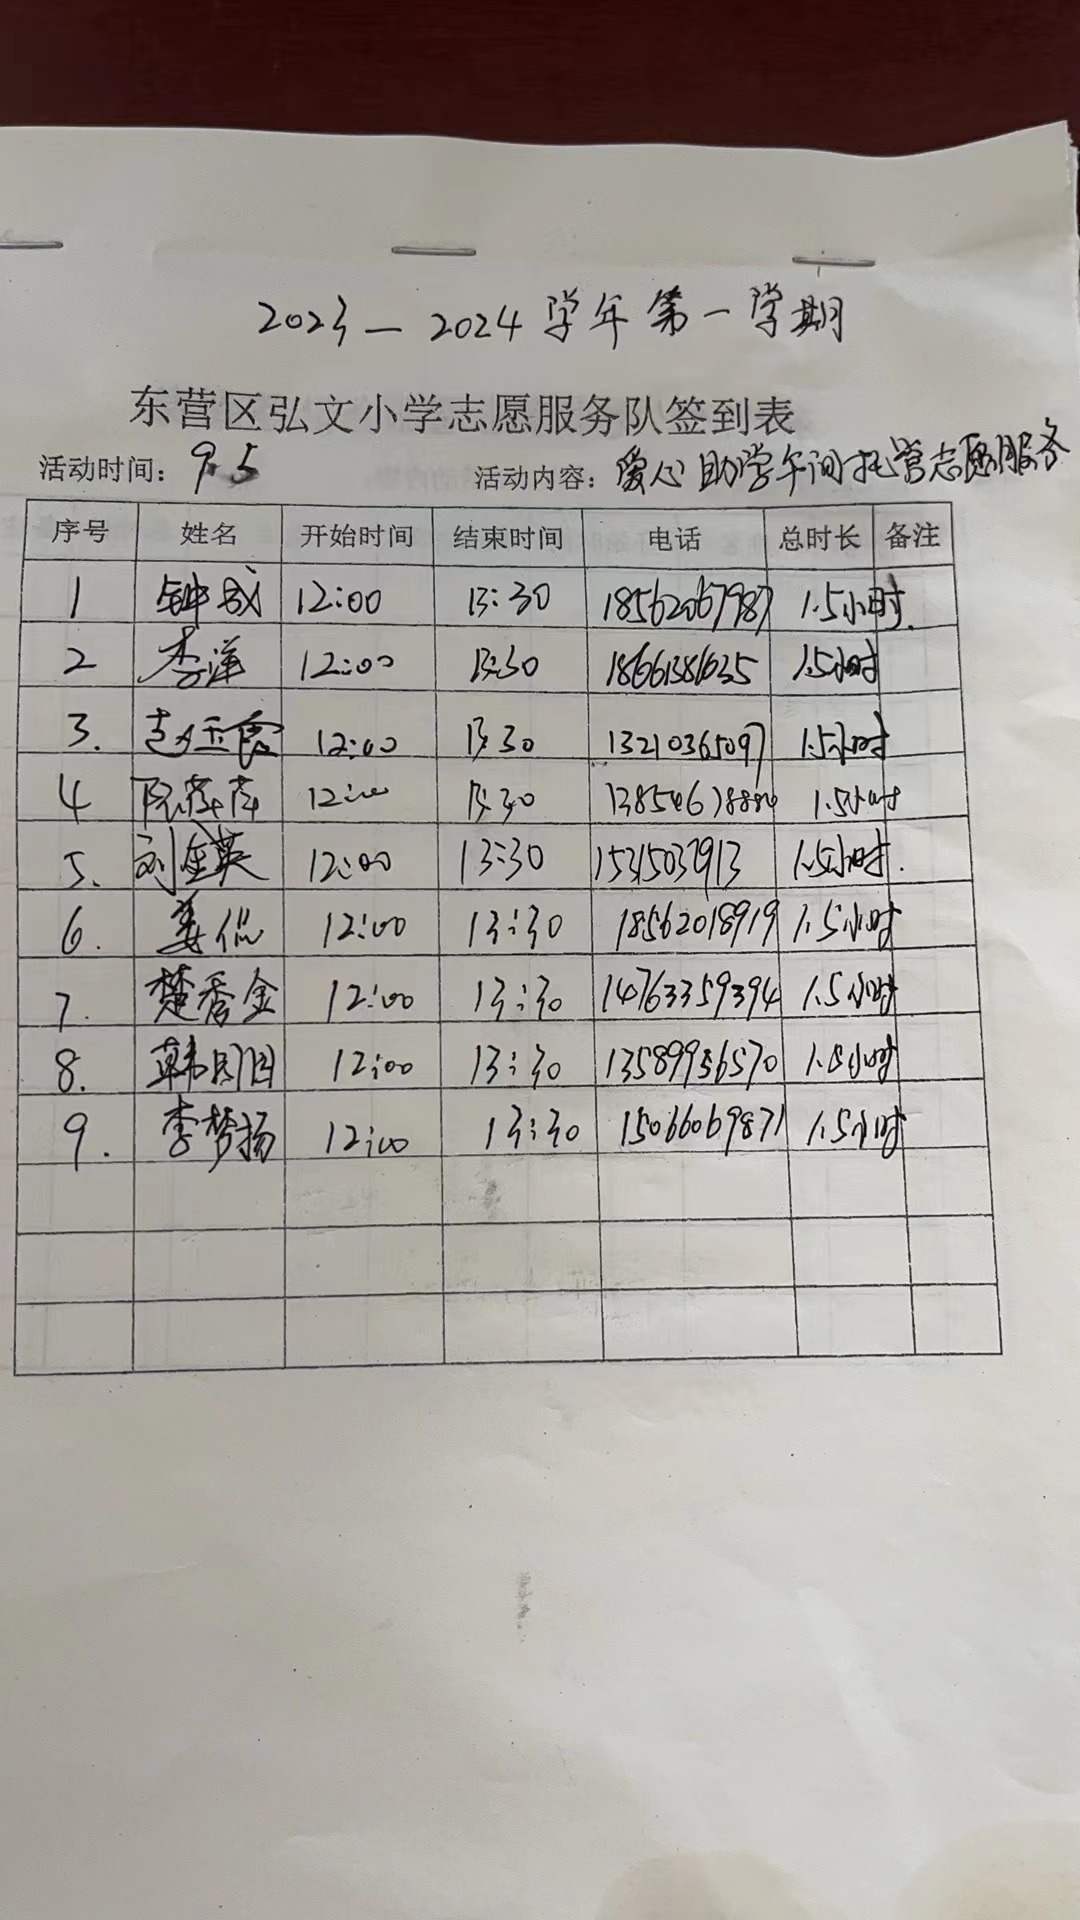 2023—2024学年第一学期
东营区弘文小学志愿服务队签到表
活动时间：9.5 活动内容：爱心助学午间托管志愿服务
序号 姓名 开始时间 结束时间 电话 总时长 备注
1 钟成 12:00 13:30 18562067987 1.5小时.
2 李洋 12:00 13:30 18661386635 1.5小时
3. 赵玉霞 12:00 13:30 13210365097 1.5小时
4 陈萍萍 12:00 13:30 13854678884 1.5小时
5. 刘金英 12:00 13:30 15315037913 1.5小时.
6. 姜侃 12:00 13:30 18562018919 1.5小时
7. 楚秀金 12:00 13:30 14763359394 1.5小时
8. 韩园园 12:00 13:30 13589956570 1.5小时
9. 李梦扬 12:00 13:30 15066069871 1.5小时